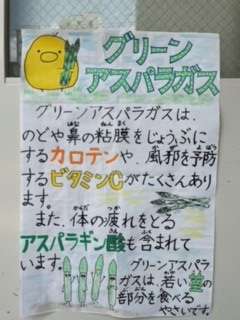 グリーン
アスパラガス
グリーンアスパラガスは、
のどや鼻の粘膜をじょうぶに
するカロテンや、風邪を予防
するビタミンCがたくさんあり
ます。
また、体の疲れをとる
アスパラギン酸も含まれて
います。
グリーンアスパラ
ガスは、若い茎の
部分を食べる
やさいです。